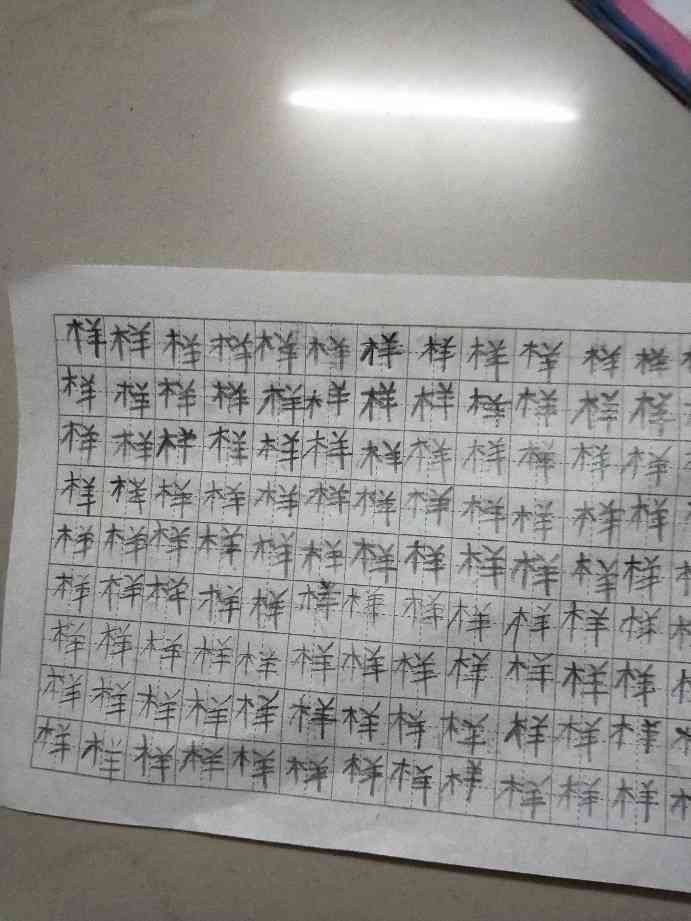 样样样样样样样样样样样样
样样样样样样样样样样样样
样样样样样样样样样样样样
样样样样样样样样样样样样
样样样样样样样样样样样样
样样样样样样样样样样样样
样样样样样样样样样样样样
样样样样样样样样样样样样
样样样样样样样样样样样样